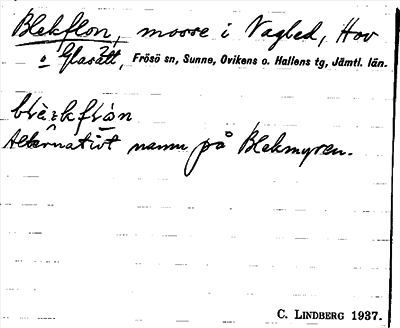 Blekflon, mosse i Vagled, Hov
o Glasätt, Frösö sn, Sunne, Ovikens o. Hallens tg, Jämtl. län.
Alternativt namn på Blekmyren.
C. LINDBERG 1937.